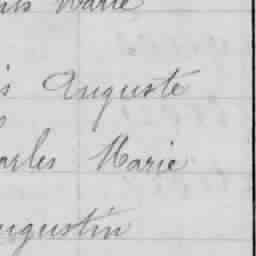 Marie
s Auguste
arles Marie
ugustin